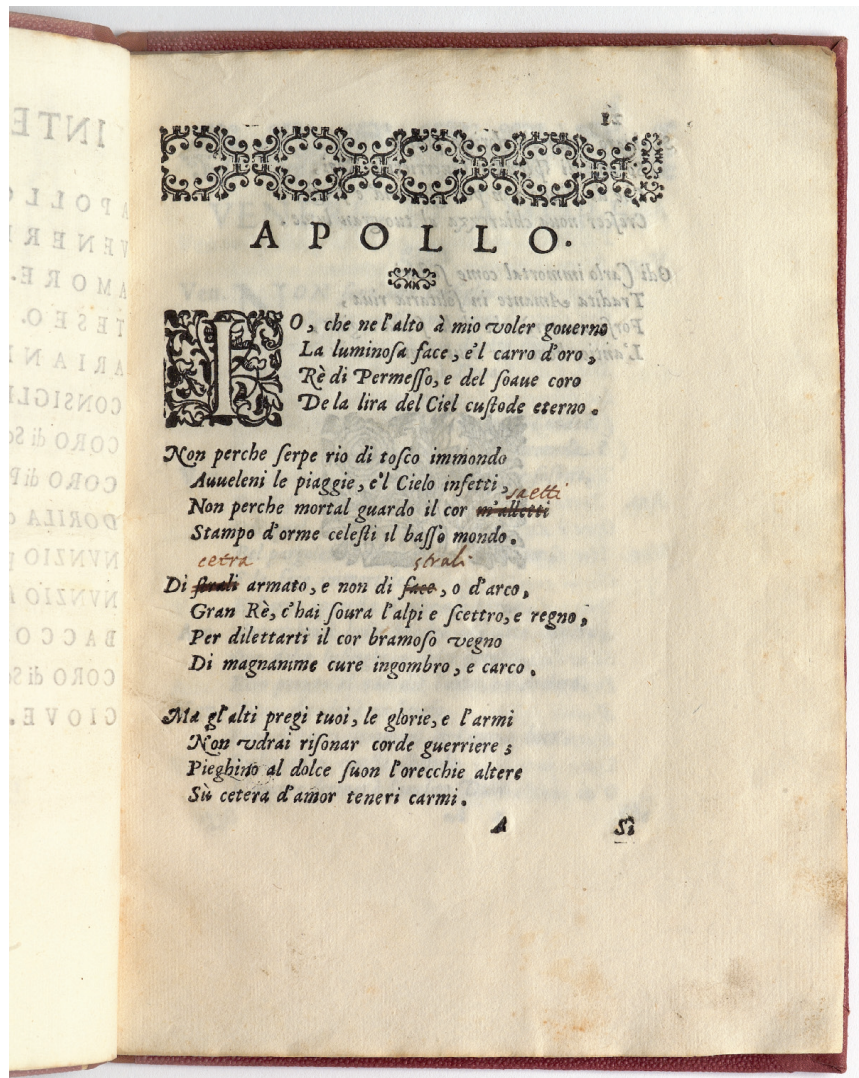 APOLLO.
IO, che ne l'alto à mio voler gouerno
La luminosa face, e'l carro d'oro,
Rè di Permesso, e del soaue coro
De la lira del Ciel custode eterno.
Non perche serpe rio di tosco immondo
Auueleni le piaggie, e'l Cielo infetti,
saetti
Non perche mortal guardo il cor m'alletti
Stampo d'orme celesti il basso mondo.
cetra strali
Di strali armato, e non di face, o d'arco,
Gran Rè, c'hai soura l'alpi e scettro, e regno,
Per dilettarti il cor bramoso vegno
Di magnanime cure ingombro, e carco.
Ma gl'alti pregi tuoi, le glorie, e l'armi
Non vdrai risonar corde guerriere;
Pieghino al dolce suon l'orecchie altere
Sù cetera d'amor teneri carmi.
A Sì